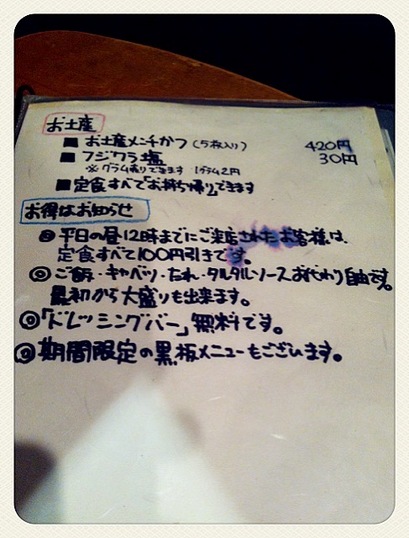 お土産
■ お土産メンチかつ(5枚入り) 420円
■ フジワラ塩 30円
※グラム売りできます 1グラム2円
■ 定食すべて「お持ち帰り」できます
お得なお知らせ
◎ 平日の昼12時までにご来店されたお客様は、
定食すべて100円引きです。
◎ ご飯・キャベツ・たれ・タルタルソースおかわり自由です。
最初から大盛りも出来ます。
◎「ドレッシングバー」無料です。
◎ 期間限定の黒板メニューもございます。